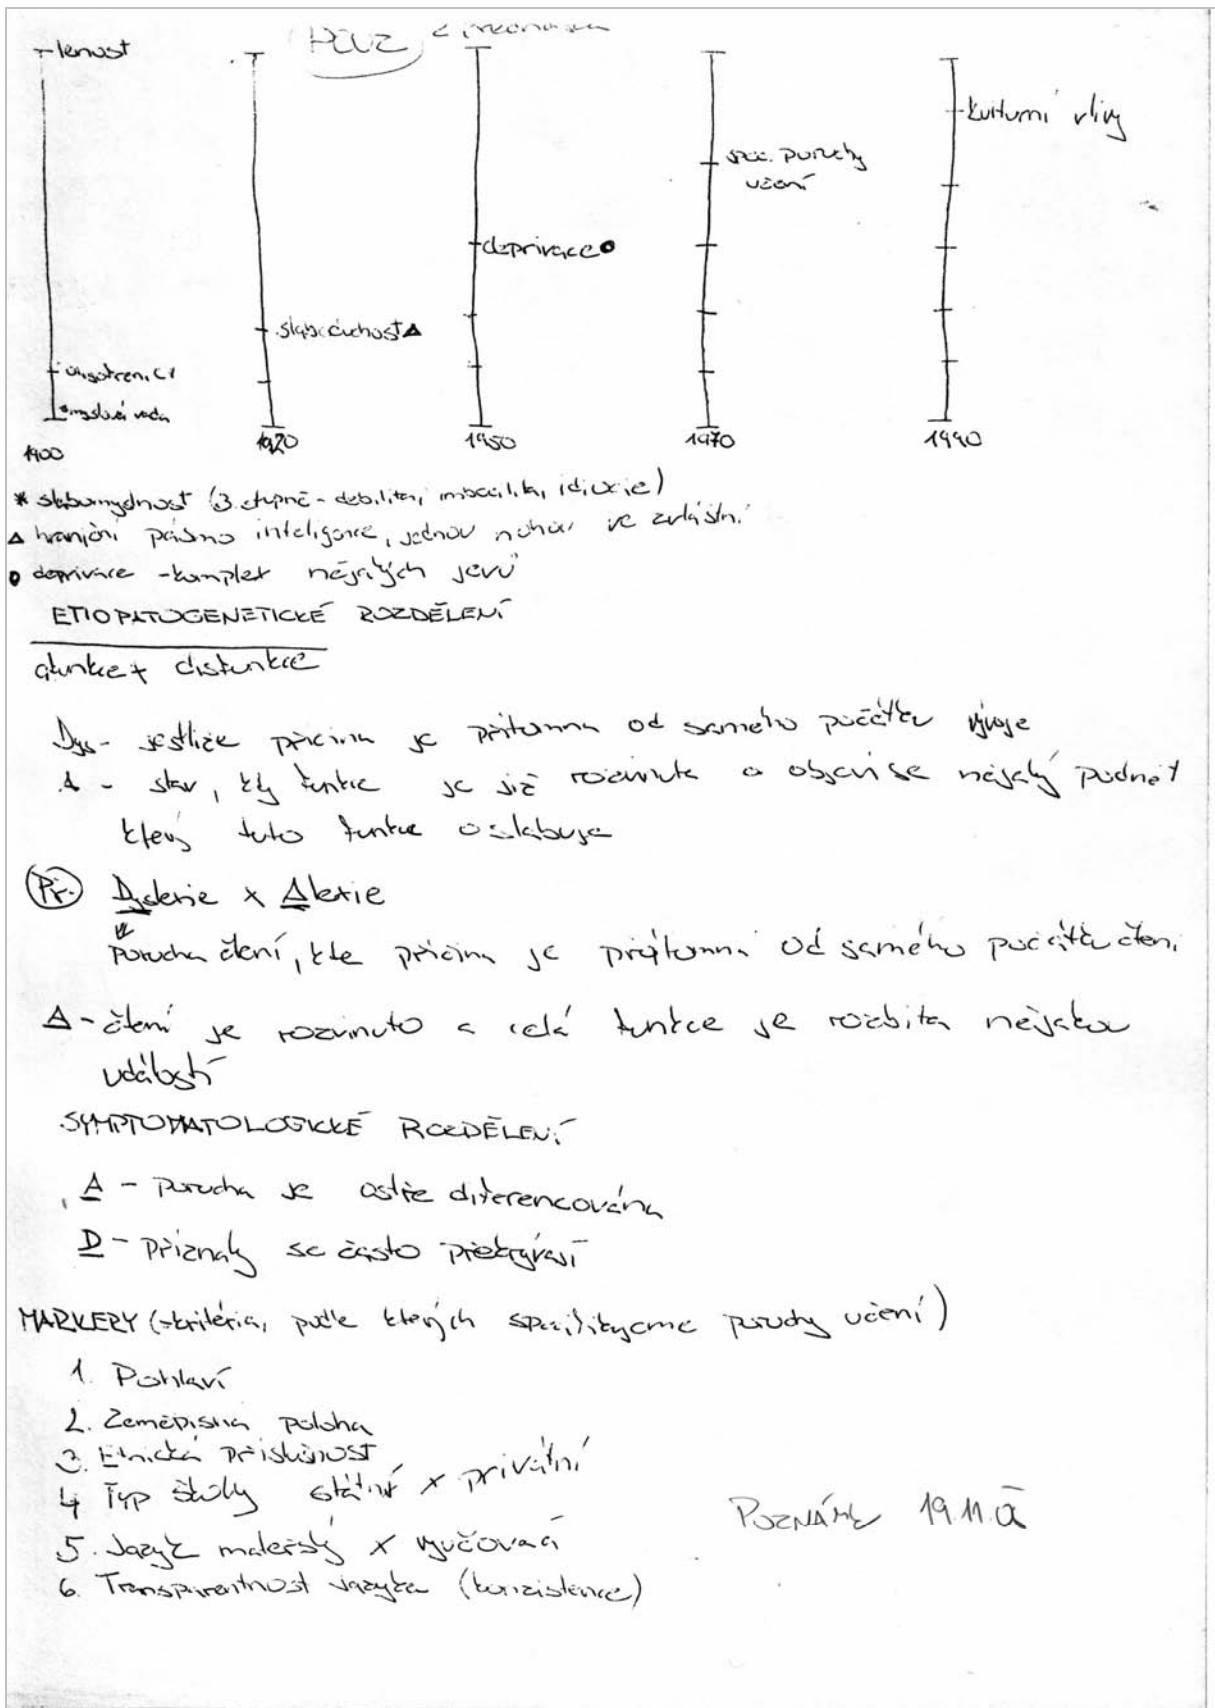 z přednášek
lenost
kulturní vlivy
spec. poruchy
učení
deprivace
slaboduchost Δ
smyslová vada
1900
1920
1950
1970
1990
* slabomyslnost (3 stupně - debilita, imbecilita, idiocie)
Δ hraniční pásmo inteligence, jednou nohou ve zvláštní
deprivace - komplex nějakých jevů
ETIOPATOGENETICKÉ ROZDĚLENÍ
afunkce x disfunkce
Dys - jestliže příčina je přítomna od samého počátku vývoje
A - stav, kdy funkce je již rozvinuta a objeví se nějaký podnět
který tuto funkce oslabuje
Př. Dyslexie x Alexie
Porucha čtení, kde příčina je přítomna od samého počátku čtení
A - čtení je rozvinuto a celá funkce je rozbita nějakou
událostí
SYMPTOMATOLOGICKÉ ROZDĚLENÍ
A - porucha je ostře diferencována
D - příznaky se často překrývají
MARKERY (-kritéria, podle kterých specifikujeme poruchy učení)
1. Pohlaví
2. Zeměpisná poloha
3. Etnická příslušnost
4 Typ školy státní x privátní
5. Jazyk mateřský x vyučovací
6. Transparentnost jazyka (konzistence)
19.11.